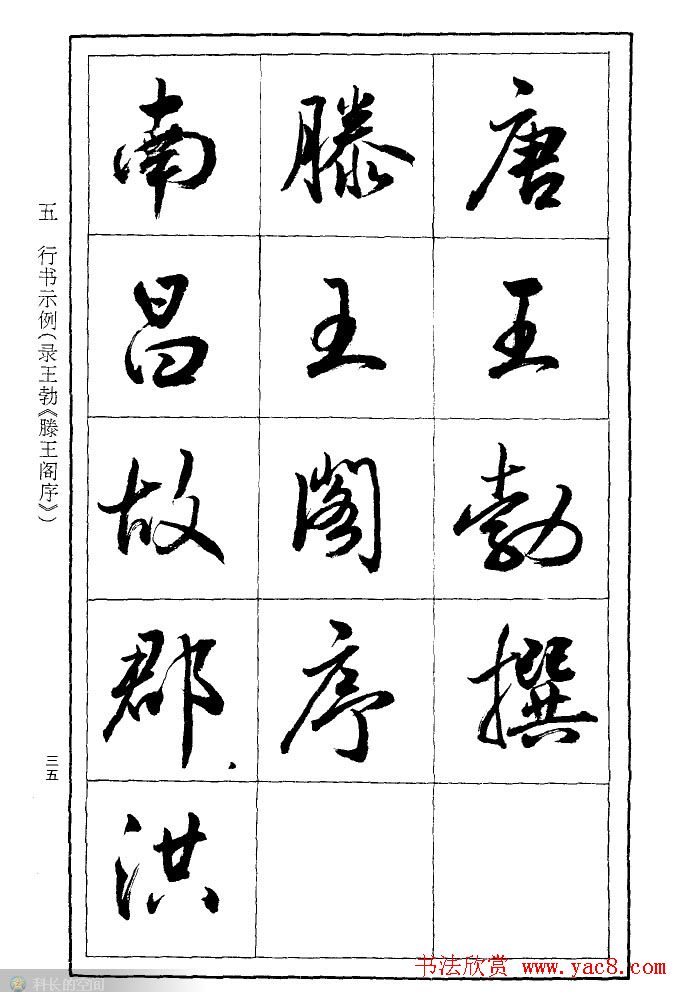 唐王勃撰
滕王阁序
南昌故郡.洪
五 行书示例(录王勃《滕王阁序》)
三五
书法欣赏 www.yac8.com
科长的空间